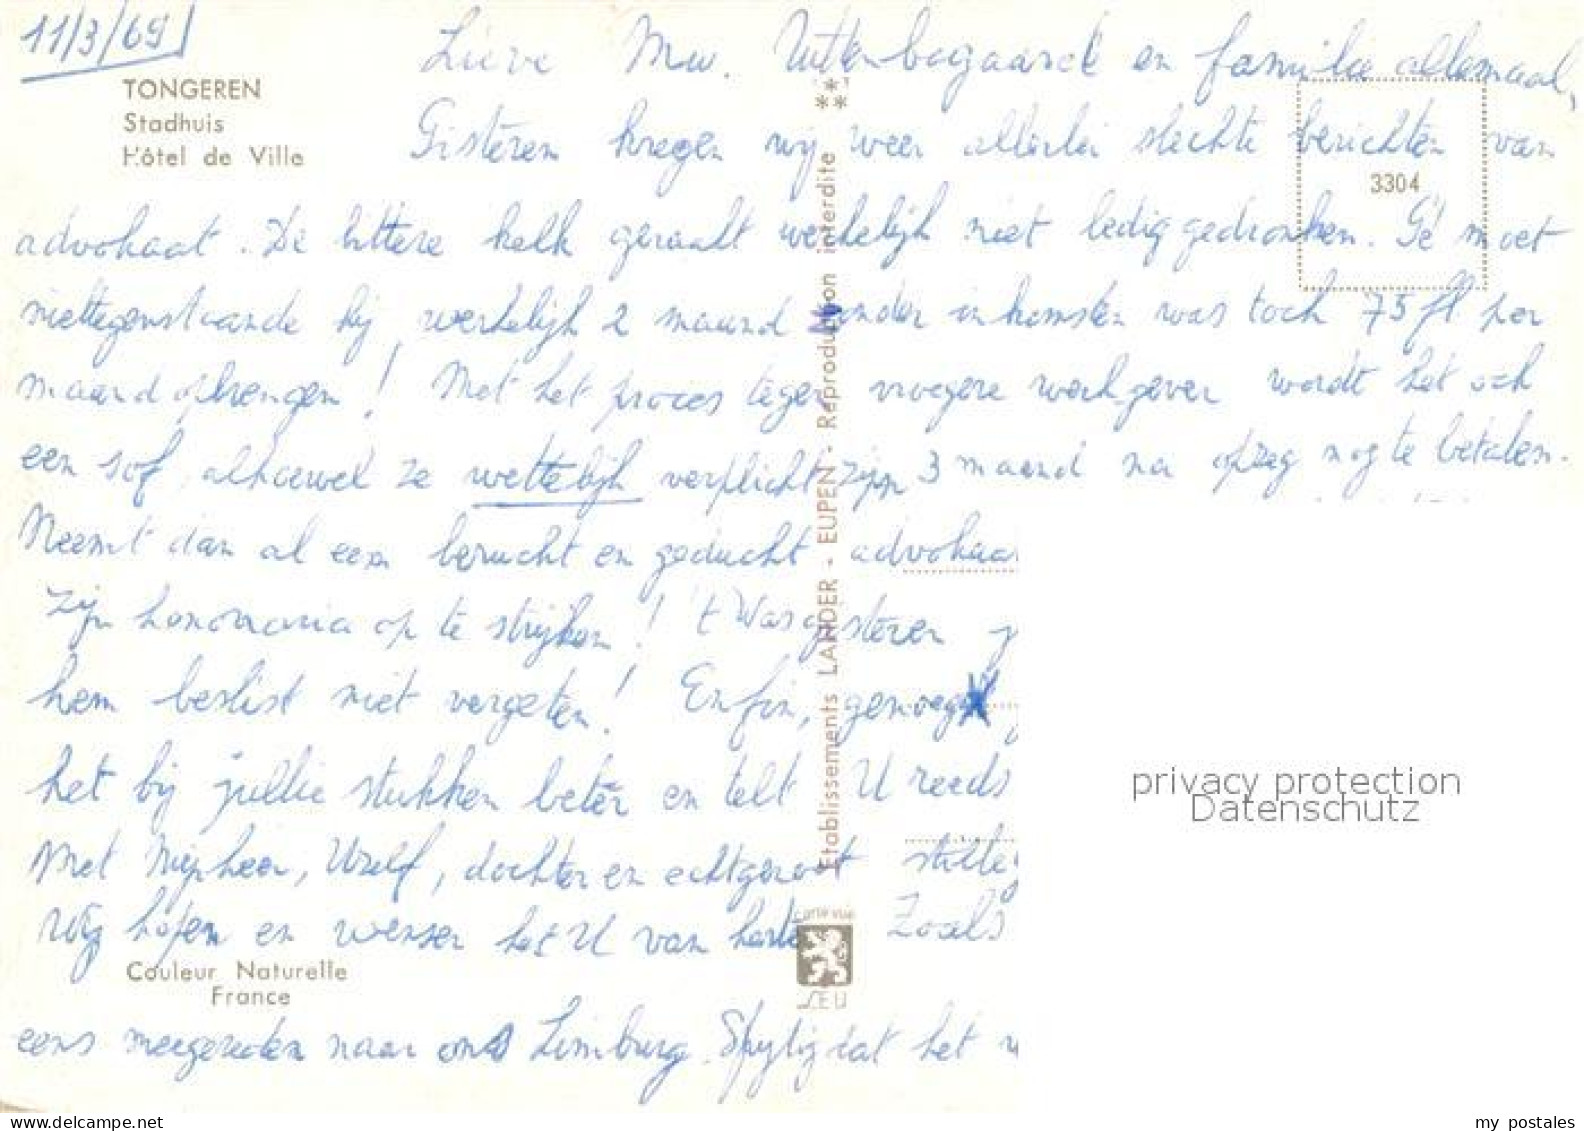 11/3/69
TONGEREN
Stadhuis
Hôtel de Ville
Lieve Mw. en familie allemaal,
Gisteren kregen wij weer allerlei slechte berichten van
advokaat. De bittere kelk geraakt werkelijk niet ledig gedronken. Gé moet
niettegenstaande hij werkelijk 2 maand zonder inkomsten was toch 75 fl per
maand opbrengen! Met het proces tegen vroegere werkgever wordt het ook
een sof, alhoewel ze wettelijk verplicht zijn 3 maand na opzeg nog te betalen.
Neemt dan al een berucht en geducht advokaa
zijn honoraria op te strijken! 't Was gisteren
hem beslist niet vergeten! Enfin, genoeg
het bij jullie stukken beter en telt U reeds
Met Mijnheer, Uzelf, dochter en echtgenoot
Wij hopen en wensen het U van harte Zoals
eens meegereden naar ons Limburg. Spijtig dat het
Couleur Naturelle
France
3304
Etablissements LANDER - EUPEN - Reproduction interdite
carte vue
LEU
privacy protection
Datenschutz
my postales